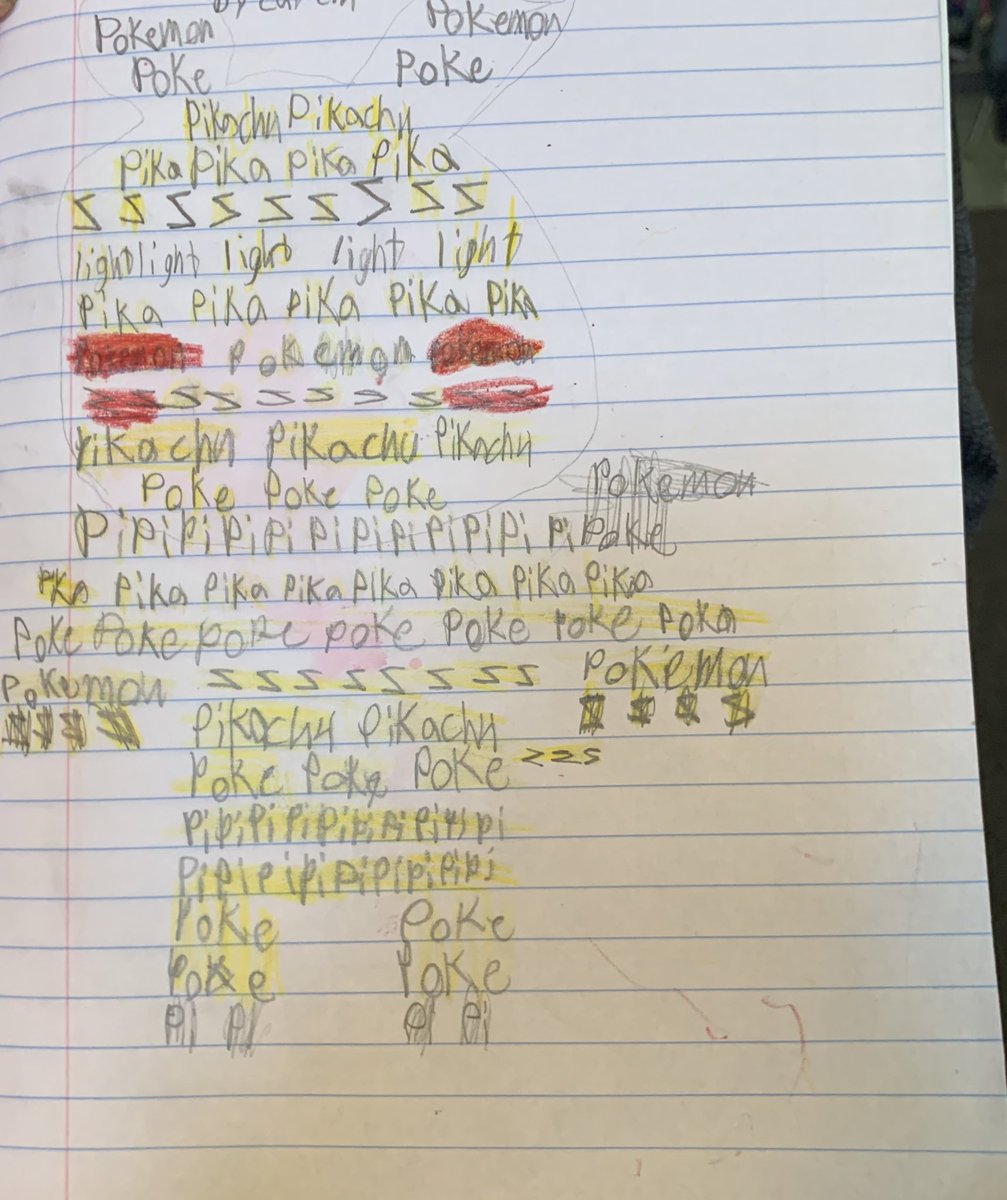 by
Pokemon Pokemon
Poke Poke
Pikachu Pikachu
Pika Pika Pika Pika
S S S S S S S S S
light light light light light
Pika Pika Pika Pika Pika
Pokemon Pokemon Pokemon
S S S S S S
Pikachu Pikachu Pikachu
Poke Poke Poke Pokemon
Pi pi pi pi pi pi pi pi pi pi pi pi Poke
PKA Pika Pika Pika Pika Pika Pika Pika
Poke Poke poke poke Poke Poke Poka
Pokemon S S S S S S S S Pokemon
Pikachu Pikachu
Poke Poke Poke z z s
Pi pi pi pi pi pi pi pi pi pi
Pi pi pi pi pi pi pi pi pi
Poke Poke
Poke Poke
Pi Pi Pi Pi